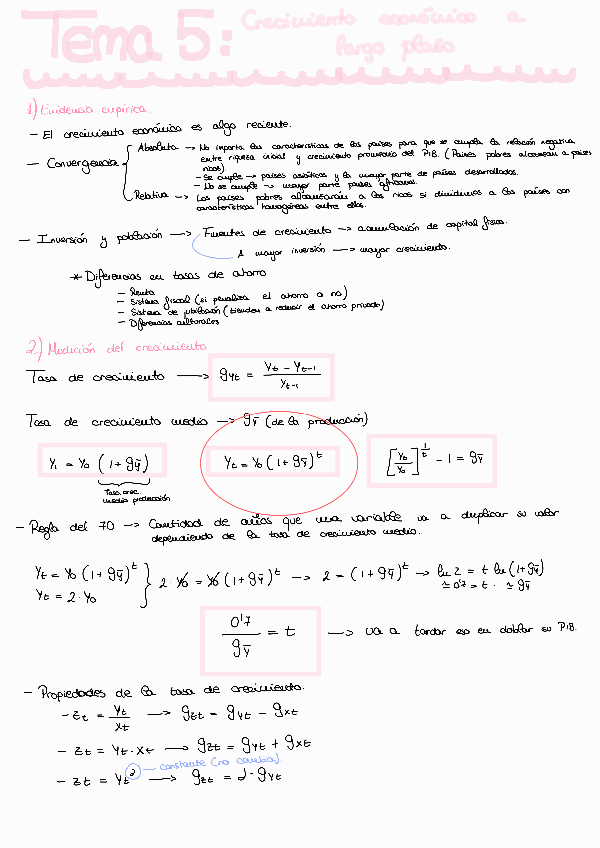 Tema 5: Crecimiento económico a
largo plazo
1) Evidencia empírica.
- El crecimiento económico es algo reciente.
- Convergencia
Absoluta → No importa las características de los países para que se cumpla la relación negativa
entre riqueza inicial y crecimiento promedio del PIB. (Países pobres alcanzan a países
ricos).
- Se cumple → países asiáticos y la mayor parte de países desarrollados.
- No se cumple → mayor parte países africanos.
Relativa → Los países pobres alcanzarán a los ricos si dividimos a los países con
características homogéneas entre ellos.
- Inversión y población → Fuentes de crecimiento → acumulación de capital físico.
A mayor inversión → mayor crecimiento.
* Diferencias en tasas de ahorro
- Renta
- Sistema fiscal (si penaliza el ahorro o no)
- Sistema de jubilación (tienden a reducir el ahorro privado)
- Diferencias culturales
2) Medición del crecimiento
Tasa de crecimiento → gyt = (Yt - Yt-1) / Yt-1
Tasa de crecimiento medio → gȳ (de la producción)
Y1 = Y0 (1 + gȳ)
Tasa crec.
medio producción
Yt = Y0 (1 + gȳ)^t
[Yt / Y0]^(1/t) - 1 = gȳ
- Regla del 70 → Cantidad de años que una variable va a duplicar su valor
dependiendo de la tasa de crecimiento medio.
Yt = Y0 (1 + gȳ)^t
Yt = 2 · Y0
2 · Y0 = Y0 (1 + gȳ)^t → 2 = (1 + gȳ)^t → ln 2 = t ln (1 + gȳ)
≃ 0'7 = t · ≃ gȳ
0'7 / gȳ = t → va a tardar eso en doblar su PIB.
- Propiedades de la tasa de crecimiento.
- zt = yt / xt → gzt = gyt - gxt
- zt = yt · xt → gzt = gyt + gxt
- zt = yt^α → gzt = α · gyt
constante (no cambia).